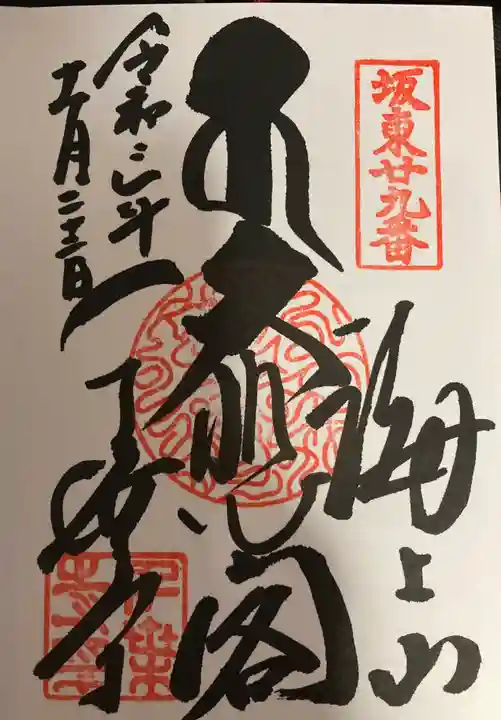 坂東廿九番
海上山
大悲閣
千葉寺
令和三年
十一月二十三日